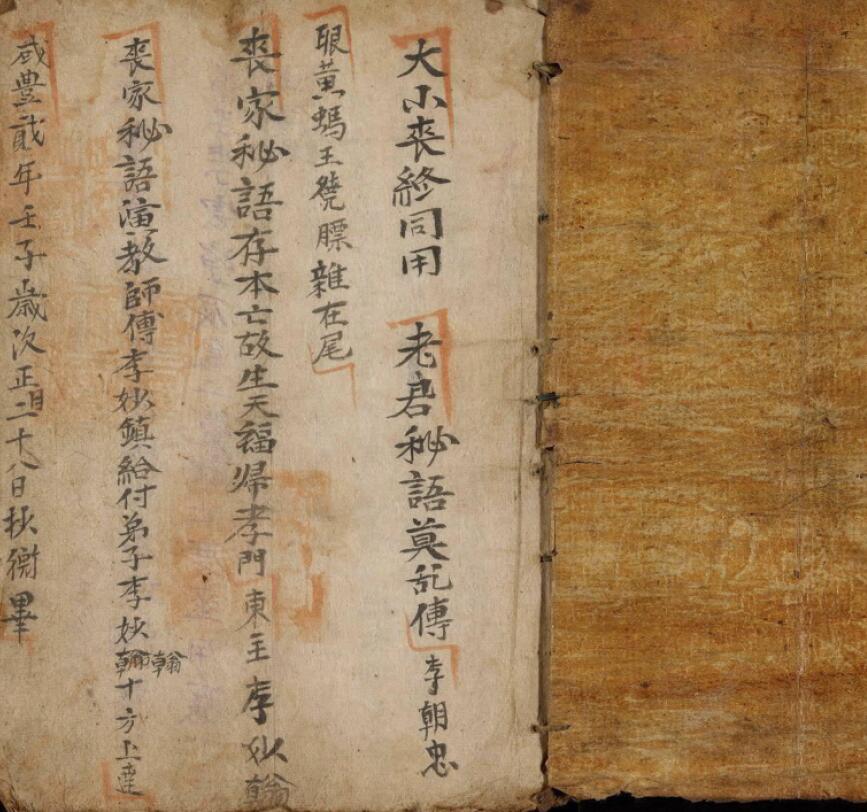 大小喪終同用 老君秘語莫乱傳 李朝忠
眼黃螞王繞膘雜在尾
喪家秘語存本亡故生天福帰孝門 東主李妙翰
喪家秘語演教師傅李妙鎮給付弟子李妙翰十方上達
咸豊貳年壬子歳次正月二十八日抄 畢